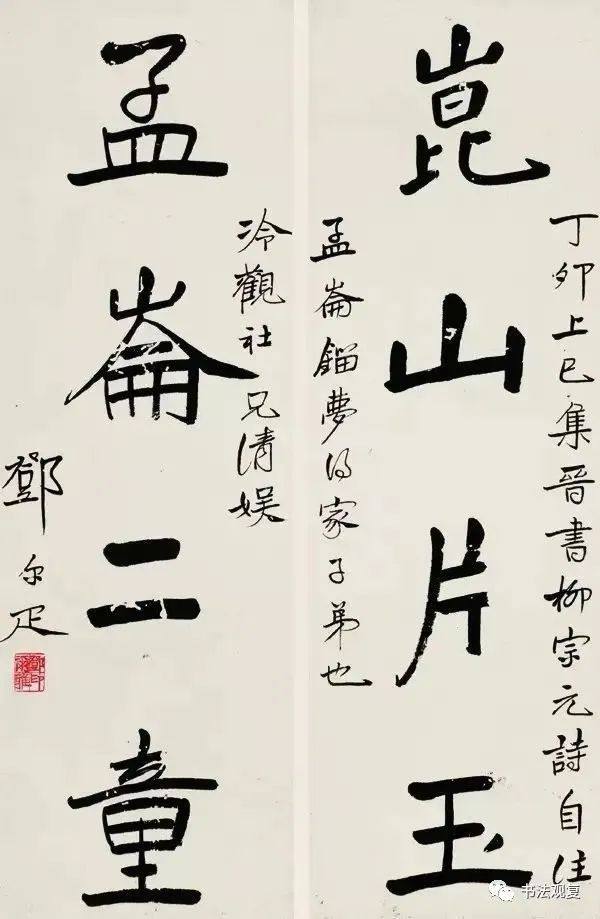 崑山片玉
丁卯上巳集晉書柳宗元詩自注
孟崙鎦夢得家子弟也
孟崙二童
冷觀社兄清娱
鄧尔疋
书法观复